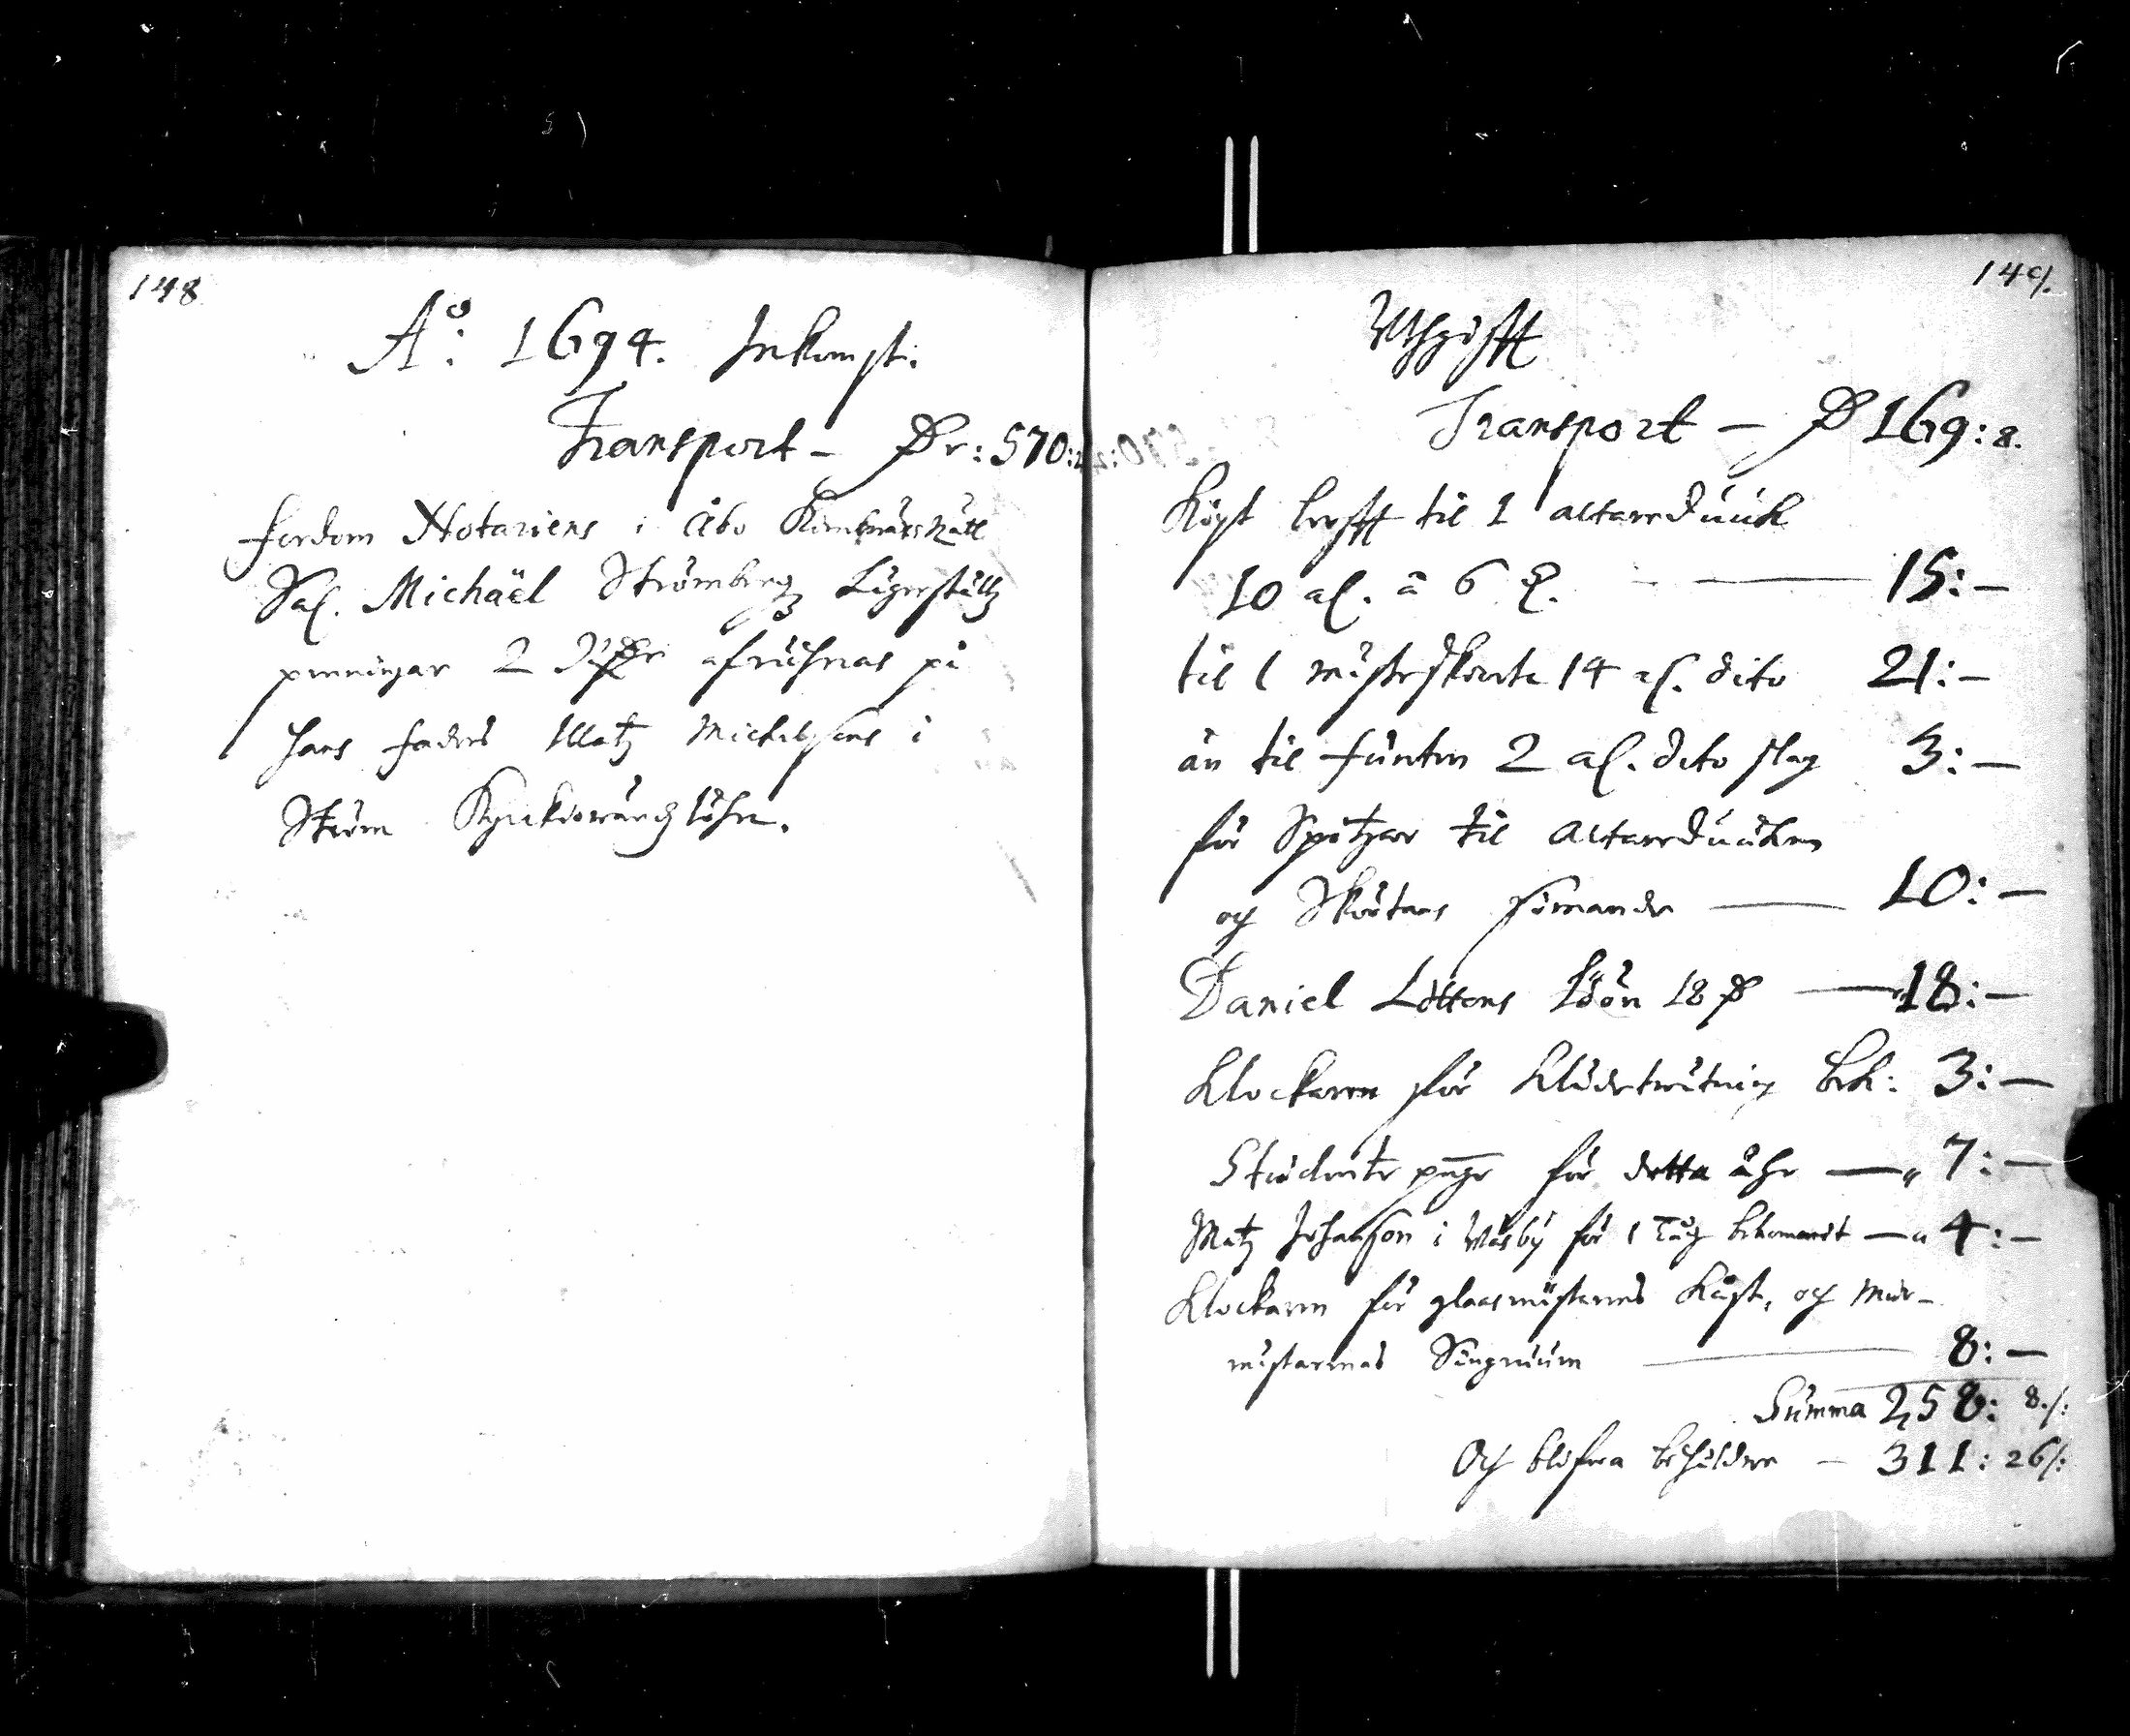 148
A:o 1694. Inkomst.
Transport - Dr: 570:
fordom Notariens i Åbo Kemnärs Rätt
Sal. Michaël Strömbergz Lägerställz
penningar 2 Rdr afrächnas på
hans faders Matz Michelsons i
Ström Kyrkiowärdzlöhn.
149.
Uthgifft
Transport - D 169: 8.
Köpt lerfft til 1 altareduuk
10 al. à 6 . — 15: -
til 1 mässeskorta 14 al. dito 21: -
än til funten 2 al. dito slag 3: -
för Spitzar til altareduuken
och Skortans sömande — 10: -
Daniel Löttens Löön 18 D — 18: -
Klockaren för klädetwätning bek: 3: -
Studente pngr för detta åhr — 7: -
Matz Johanson i Wäsby för 1 Tåg bekommit — 4: -
Klockaren för glaasmästarens kåst, och mur-
mästarenas — 8: -
Summa 258: 8./:
Och blifwa behåldne - 311: 26/: